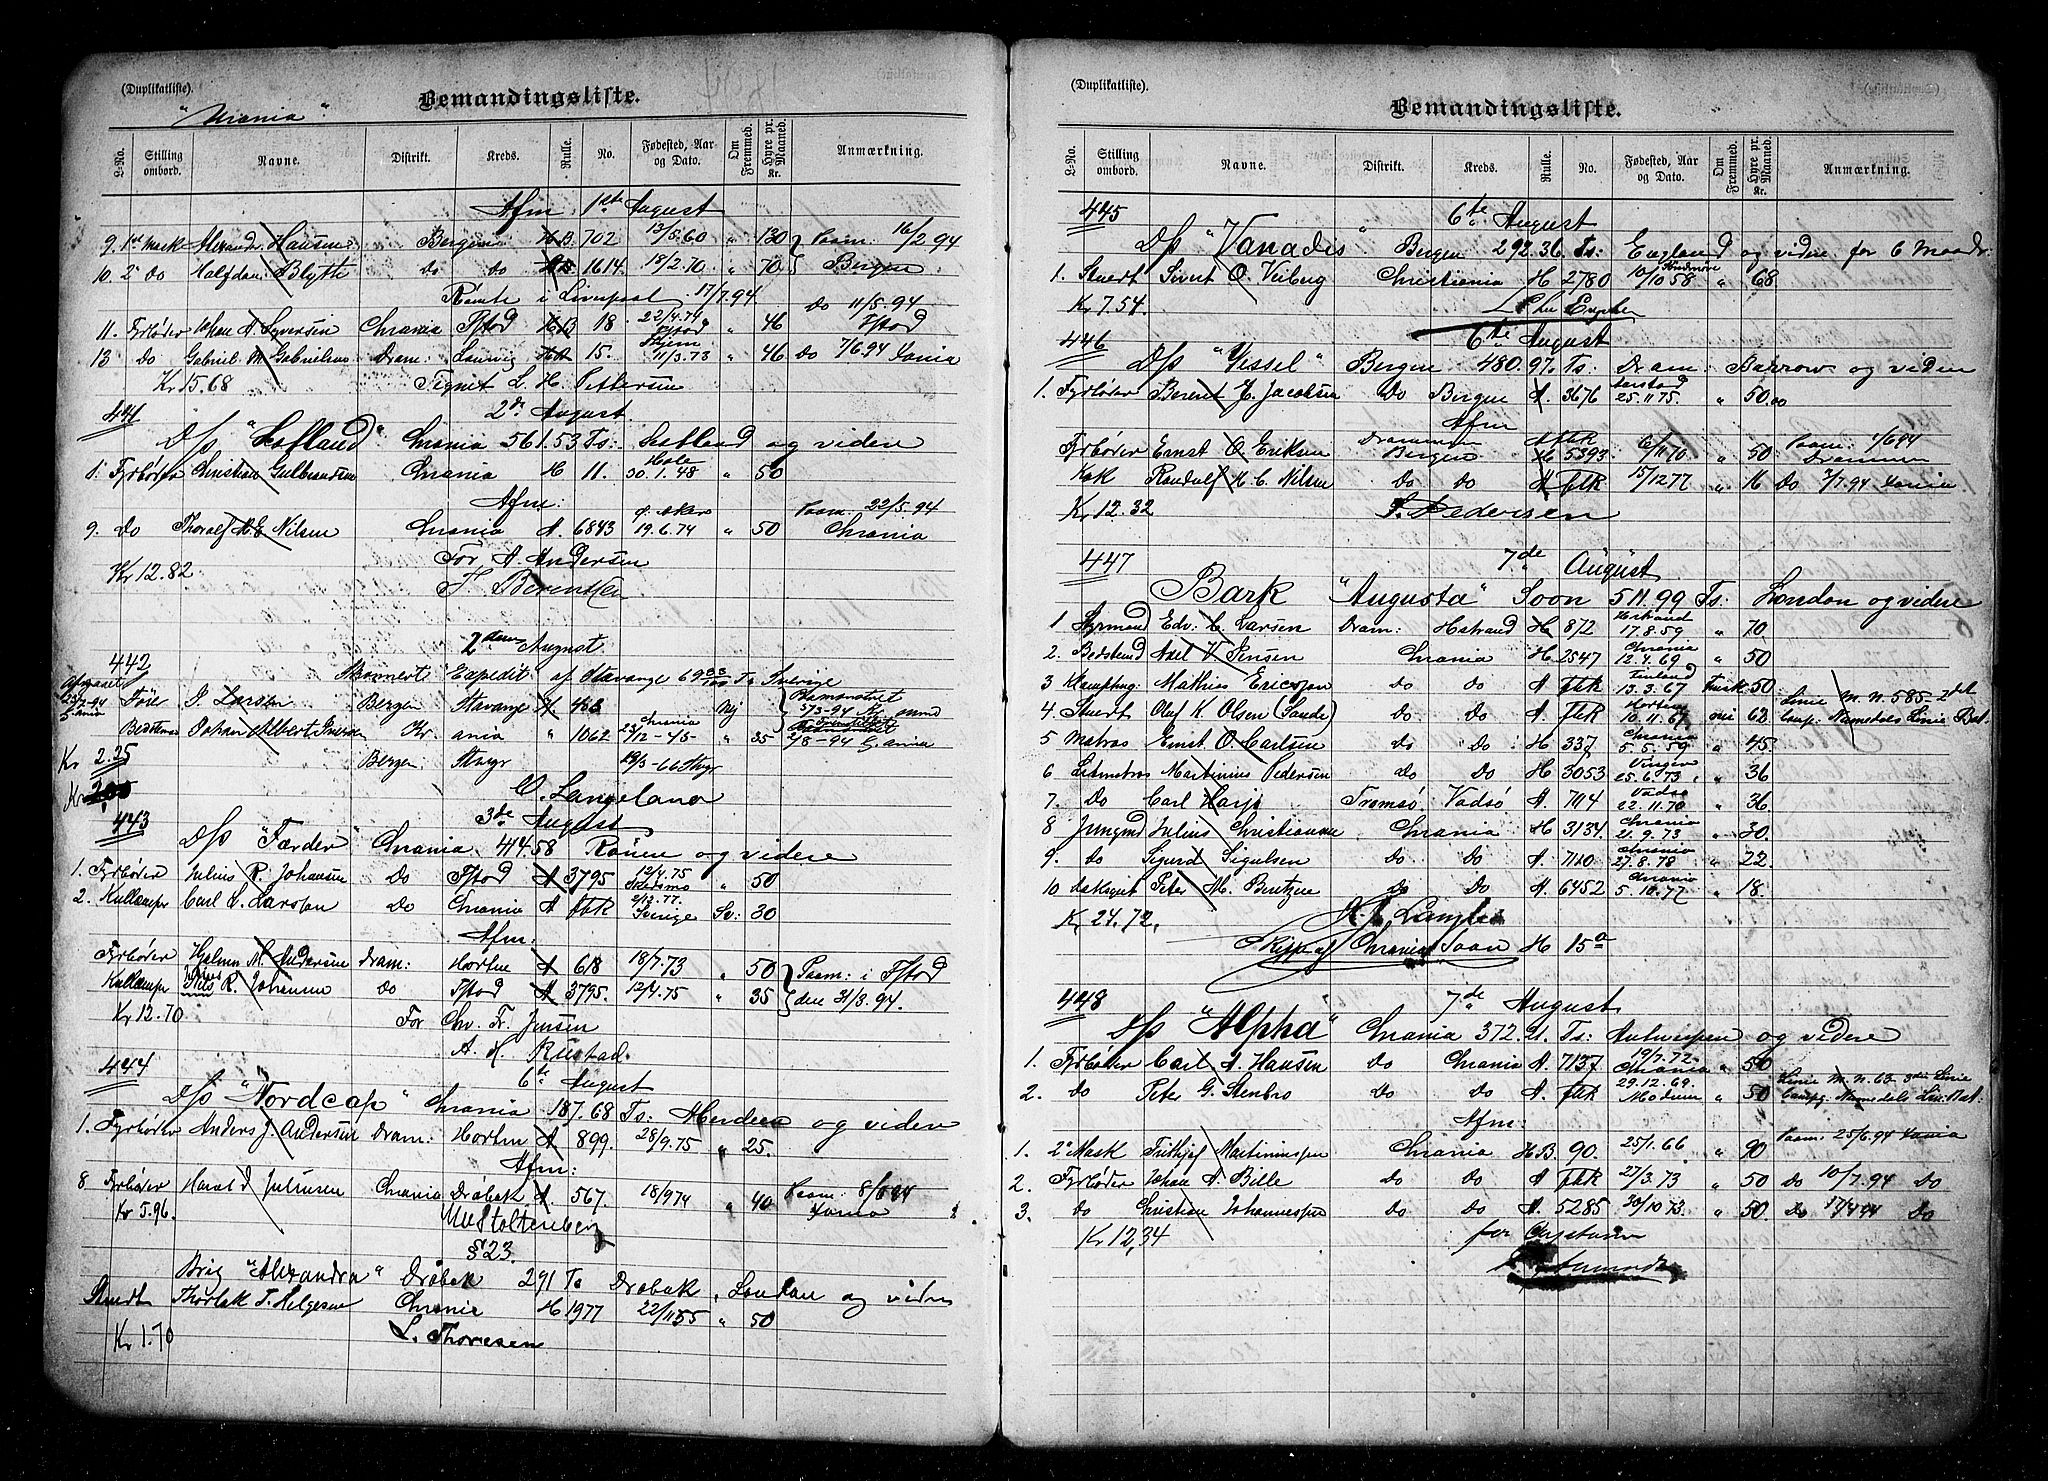 (Duplikatliste).
Bemandingsliste.
"Urania"
L-No. Stilling ombord. Navne. Distrikt. Kreds. Rulle. No. Fødested, Aar og Dato. Om Fremmed. Hyre pr. Maaned. Kr. Anmærkning.
Afm 1ste August
9. 1st Mask Alexander Hansen Bergen H.B. 702 13/8.60 " 130 Paam: 16/2 94
10. 2n Do Halfdan Blytt Do Do 1614. 18/2.70 " 70 Bergen
Rømte i Liverpool 17/7.94 Do 11/5.94
11. Fyrbøder Johan A. Syversen Chrania Fstad B 18 22/4.79 Fstad " 46 Fstad
13 Do Gabriel M. Gabrielsen Dram: Laurvig 15. 11/3.73 " 46 Do 7/6.94 Xania
Kr 15.68 Tegnet L. H. Pettersen
2den August
441
D/s "Lofland" Chrania 561.53 Ts: og videre
1. Fyrbøder Christian Gulbrandsen Chrania H 11. Hole 30.1.48 " 50
Afm: Paam: 22/5.94
9. Do Thoralf M. E Nilsen Chrania A. 6843 19.6.74 " 50 Chrania
Kr 12.82 For A. Andersen
Berentsen
2den August
442 Skonnert "Expedit" af Stavanger 69 Ts Sverige
Före J. Larsen Bergen Stavanger 486 Nj
Bedstmd Johan Albert Kr. ania " 1062 Chrania " 35 2/8-94
Kr 2.25 Bergen Stvgr 19/3-66 Stvgr
O. Langeland
3de August
443
D/s "Færder" Chrania 414.58 Rouen og videre
1. Fyrbøder Julius R. Johansen Do Fstad A 3795 12/4.75 " 50
2. Kullemper Carl L. Larsson Do Chrania A fbk Sverige Sv: 30
Afm:
Fyrbøder Hjalmar M. Andersen Dram: Horten A 618 18/7.73 " 50 Paam: i Fstad
Kullemper R. Johansen Do Fstad A 3795. 12/4.75 " 35 den 31/3.94.
Kr 12.70 For Chr. Fr. Jensen
A. H. Rustad
444 6te August
D/s "Nordcap" Chrania 187.68 Ts: og videre
1. Fyrbøder Anders J. Andersen Dram: Horten A 899. 28/9.75 " 25.
Afm:
8 Fyrbøder Harald Julsrusen Chrania Drøbak A 567. 18/9 74 " 40 Paam: Xania
Kr 5.96. Stoltenberg
§ 23.
Brig "Alexandra" Drøbak 291 Ts Drøbak, London og videre
Stuert Thorlak T. Helgesen Chrania H 1977 22/11 55 " 50
Kr 1.70 L. Thoresen
(Duplikatliste).
Bemandingsliste.
L-No. Stilling ombord. Navne. Distrikt. Kreds. Rulle. No. Fødested, Aar og Dato. Om Fremmed. Hyre pr. Maaned. Kr. Anmærkning.
445 6te August
D/s "Vanadis" Bergen 292.36 Ts: England og videre for 6 Maaneder
1. Stuert Sivert O. Veiberg Christiania H 2780 10/10 58 " 68
Kr 7.54.
446 6te August
D/s "Yessel" Bergen 480.97 Ts: Dram: Barrow og videre
1. Fyrbøder Berent J. Jacobsen Do Bergen A. 3676 25.11 75. " 50.00
Afm
Fyrbøder Ernst O. Eriksen Drammen Bergen 5393 6/11 70 " 50 Paam: 1/6 94 Drammen
Kok Randulf H. C. Nilsen Do Do A fbk 15/12 77 " 16 Do 3/7.94 Xania
Kr 12.32 Pedersen
447 7de August
Bark "Augusta" Soon 511.99 Ts: London og videre
1 Styrmand Edv. C. Larsen Dram: Hstrand H 872 17.8.59 " 70
2. Bedstmd Axel V. Jensen Chrania H. 2547 Chrania 12.4.69 " 50
3 Mathias Ericsson Do Do A fbk Finland 13.3.67 Finsk 50.
4. Stuert Olaf K. Olsen (Sande) Do Do A. fbk Horten 10.11.67 nei 62 Linie m. n. 585-2det Comp. Namsdals Linie Bat.
5 Matros Ernst O. Carlsen Do Do H 337 Chrania 5.5.59 " 45
6 Letmatros Martinius Pedersen Do Do H 3053 Vinger 25.6.73 " 36
7. Do Carl Harjo Tromsø Vadsø A. 7114 Vadsø 22.11.70 " 36
8 Jungmd Julius Christiansen Chrania H 3134 Chrania 21.9.73 " 30.
9. Do Sigurd Sigulsen Do Do A. 7160 Chrania 27.8.78 " 22.
10 Peter M. Berntzen Do Do A. 6452 Chrania 5.10.77 " 18.
Kr 24.72.
Skipp af Chrania Soon H 15a
448 7de August
D/s "Alpha" Chrania 372.21. Ts: Antwerpen og videre
1. Fyrbøder Carl A. Hansen Do Chrania A. 7137 19/7.72 Chrania " 50
2. Do Peter G. Stenbro Do Do A. fbk 29.12.69. Modum " 50 Linie m. n. 63 3die Linie Compg. Namsdals Lin: Bat.
Afm:
1. 2n Mask Frithjof Martiniussen Chrania H.B. 90. 25/1.66 " 90 Paam: 25/6.94 Xania
2. Fyrbøder Johan A. Bille Do Do A fbk 27/3.73 " 50 Do 10/7.94 Do
3. Do Cristian Johannessen Do Do A. 5285 30/10 73. " 50. Do 17/4 94 Do
Kr 12,34 for Captainen